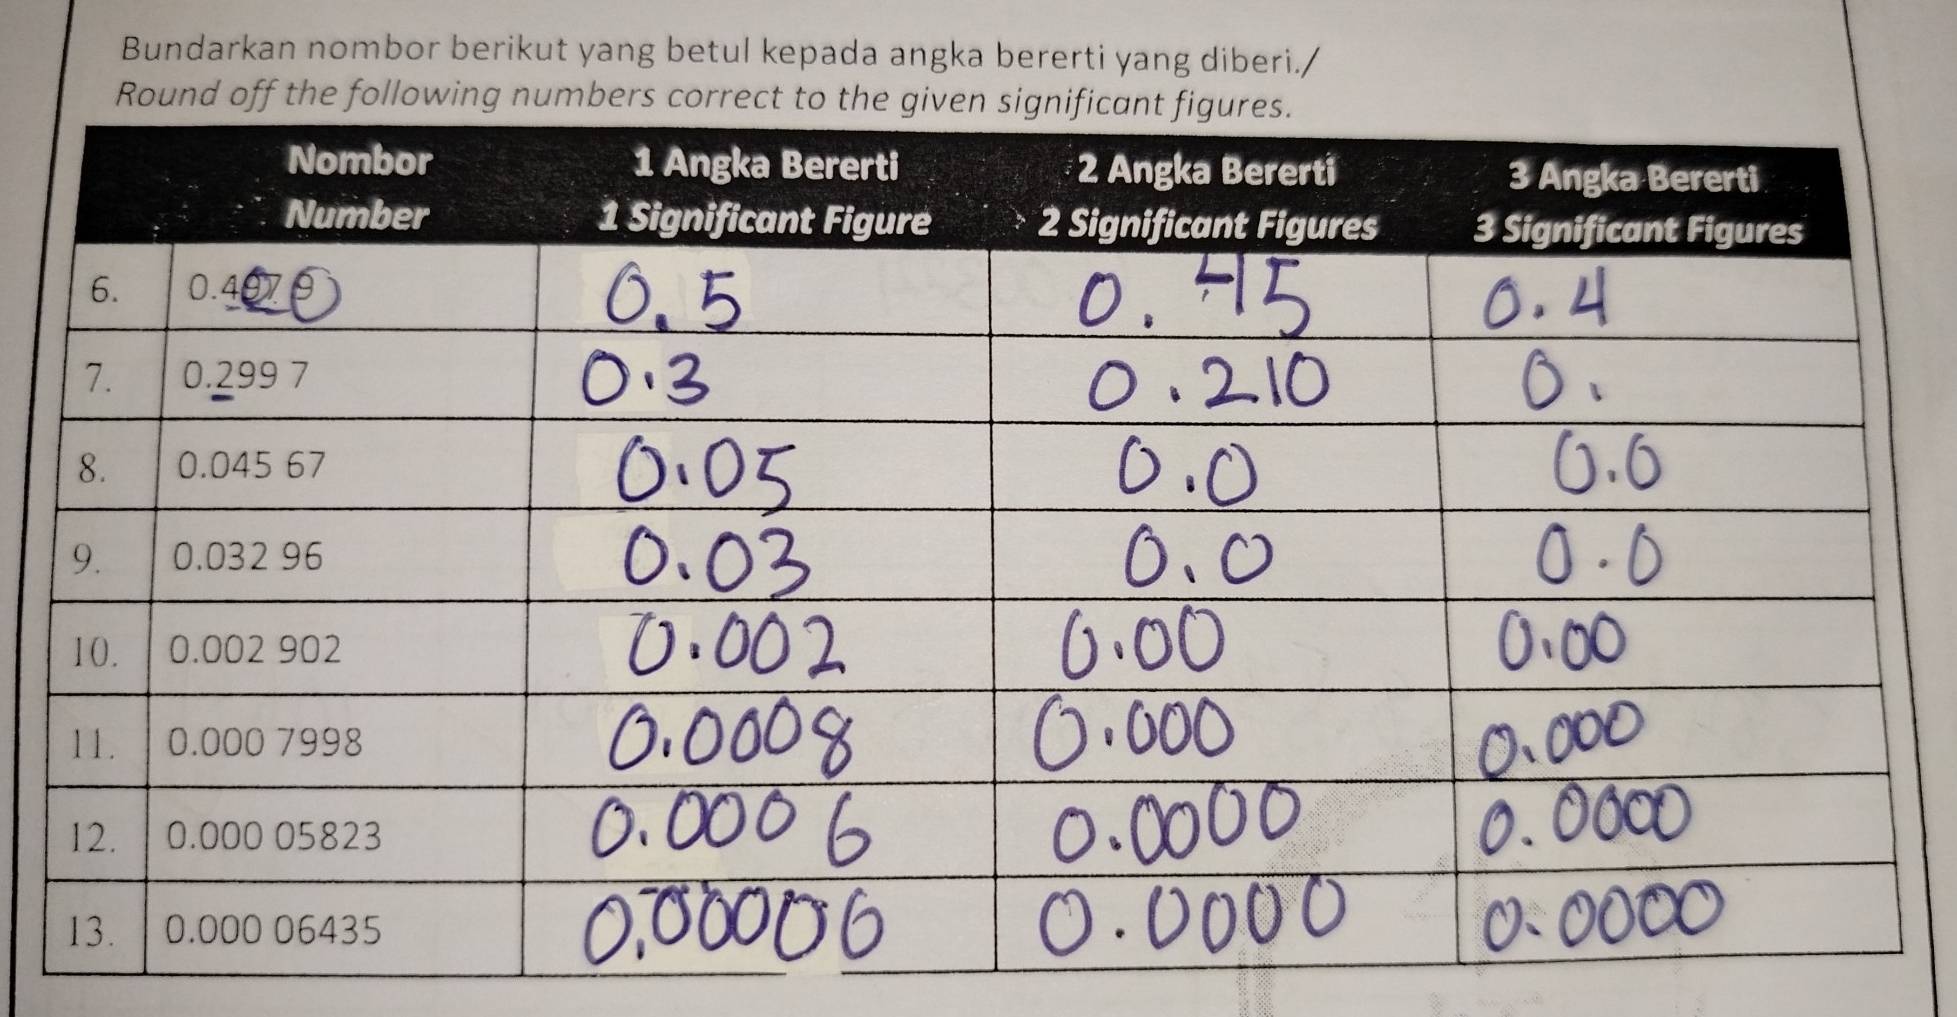 Bundarkan nombor berikut yang betul kepada angka bererti yang diberi./
Round off the following numbers correct to the given significant figures.
Nombor 1 Angka Bererti 2 Angka Bererti 3 Angka Bererti
Number 1 Significant Figure 2 Significant Figures 3 Significant Figures
6. 0.5 0.45 0.4
7. 0.299 7 0.3 0.210 0.
8. 0.045 67 0.05 0.0 0.0
9. 0.032 96 0.03 0.0 0.0
10. 0.002 902 0.002 0.00 0.00
11. 0.000 7998 0.0008 0.000 0.000
12. 0.000 05823 0.0006 0.0000 0.0000
13. 0.000 06435 0.00006 0.0000 0.0000